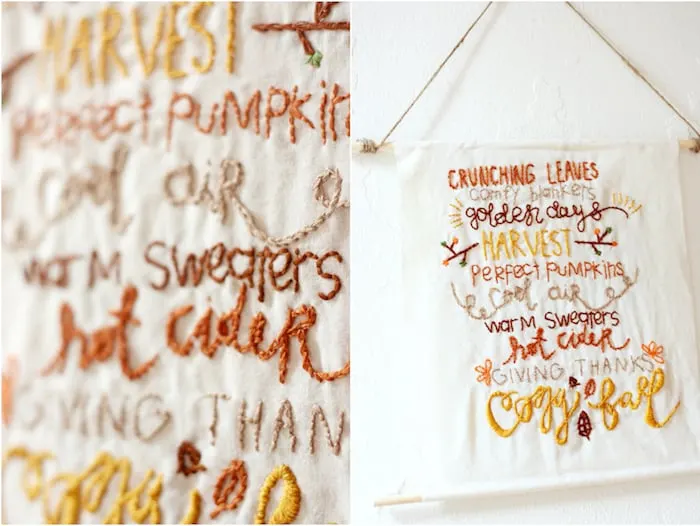 HARVEST
perfect pumpkin
cool air
warm sweaters
hot cider
GIVING THAN
Cozy
CRUNCHING LEAVES
comfy blankets
golden days
HARVEST
perfect pumpkins
cool air
warm sweaters
hot cider
GIVING THANKS
Cozy fall